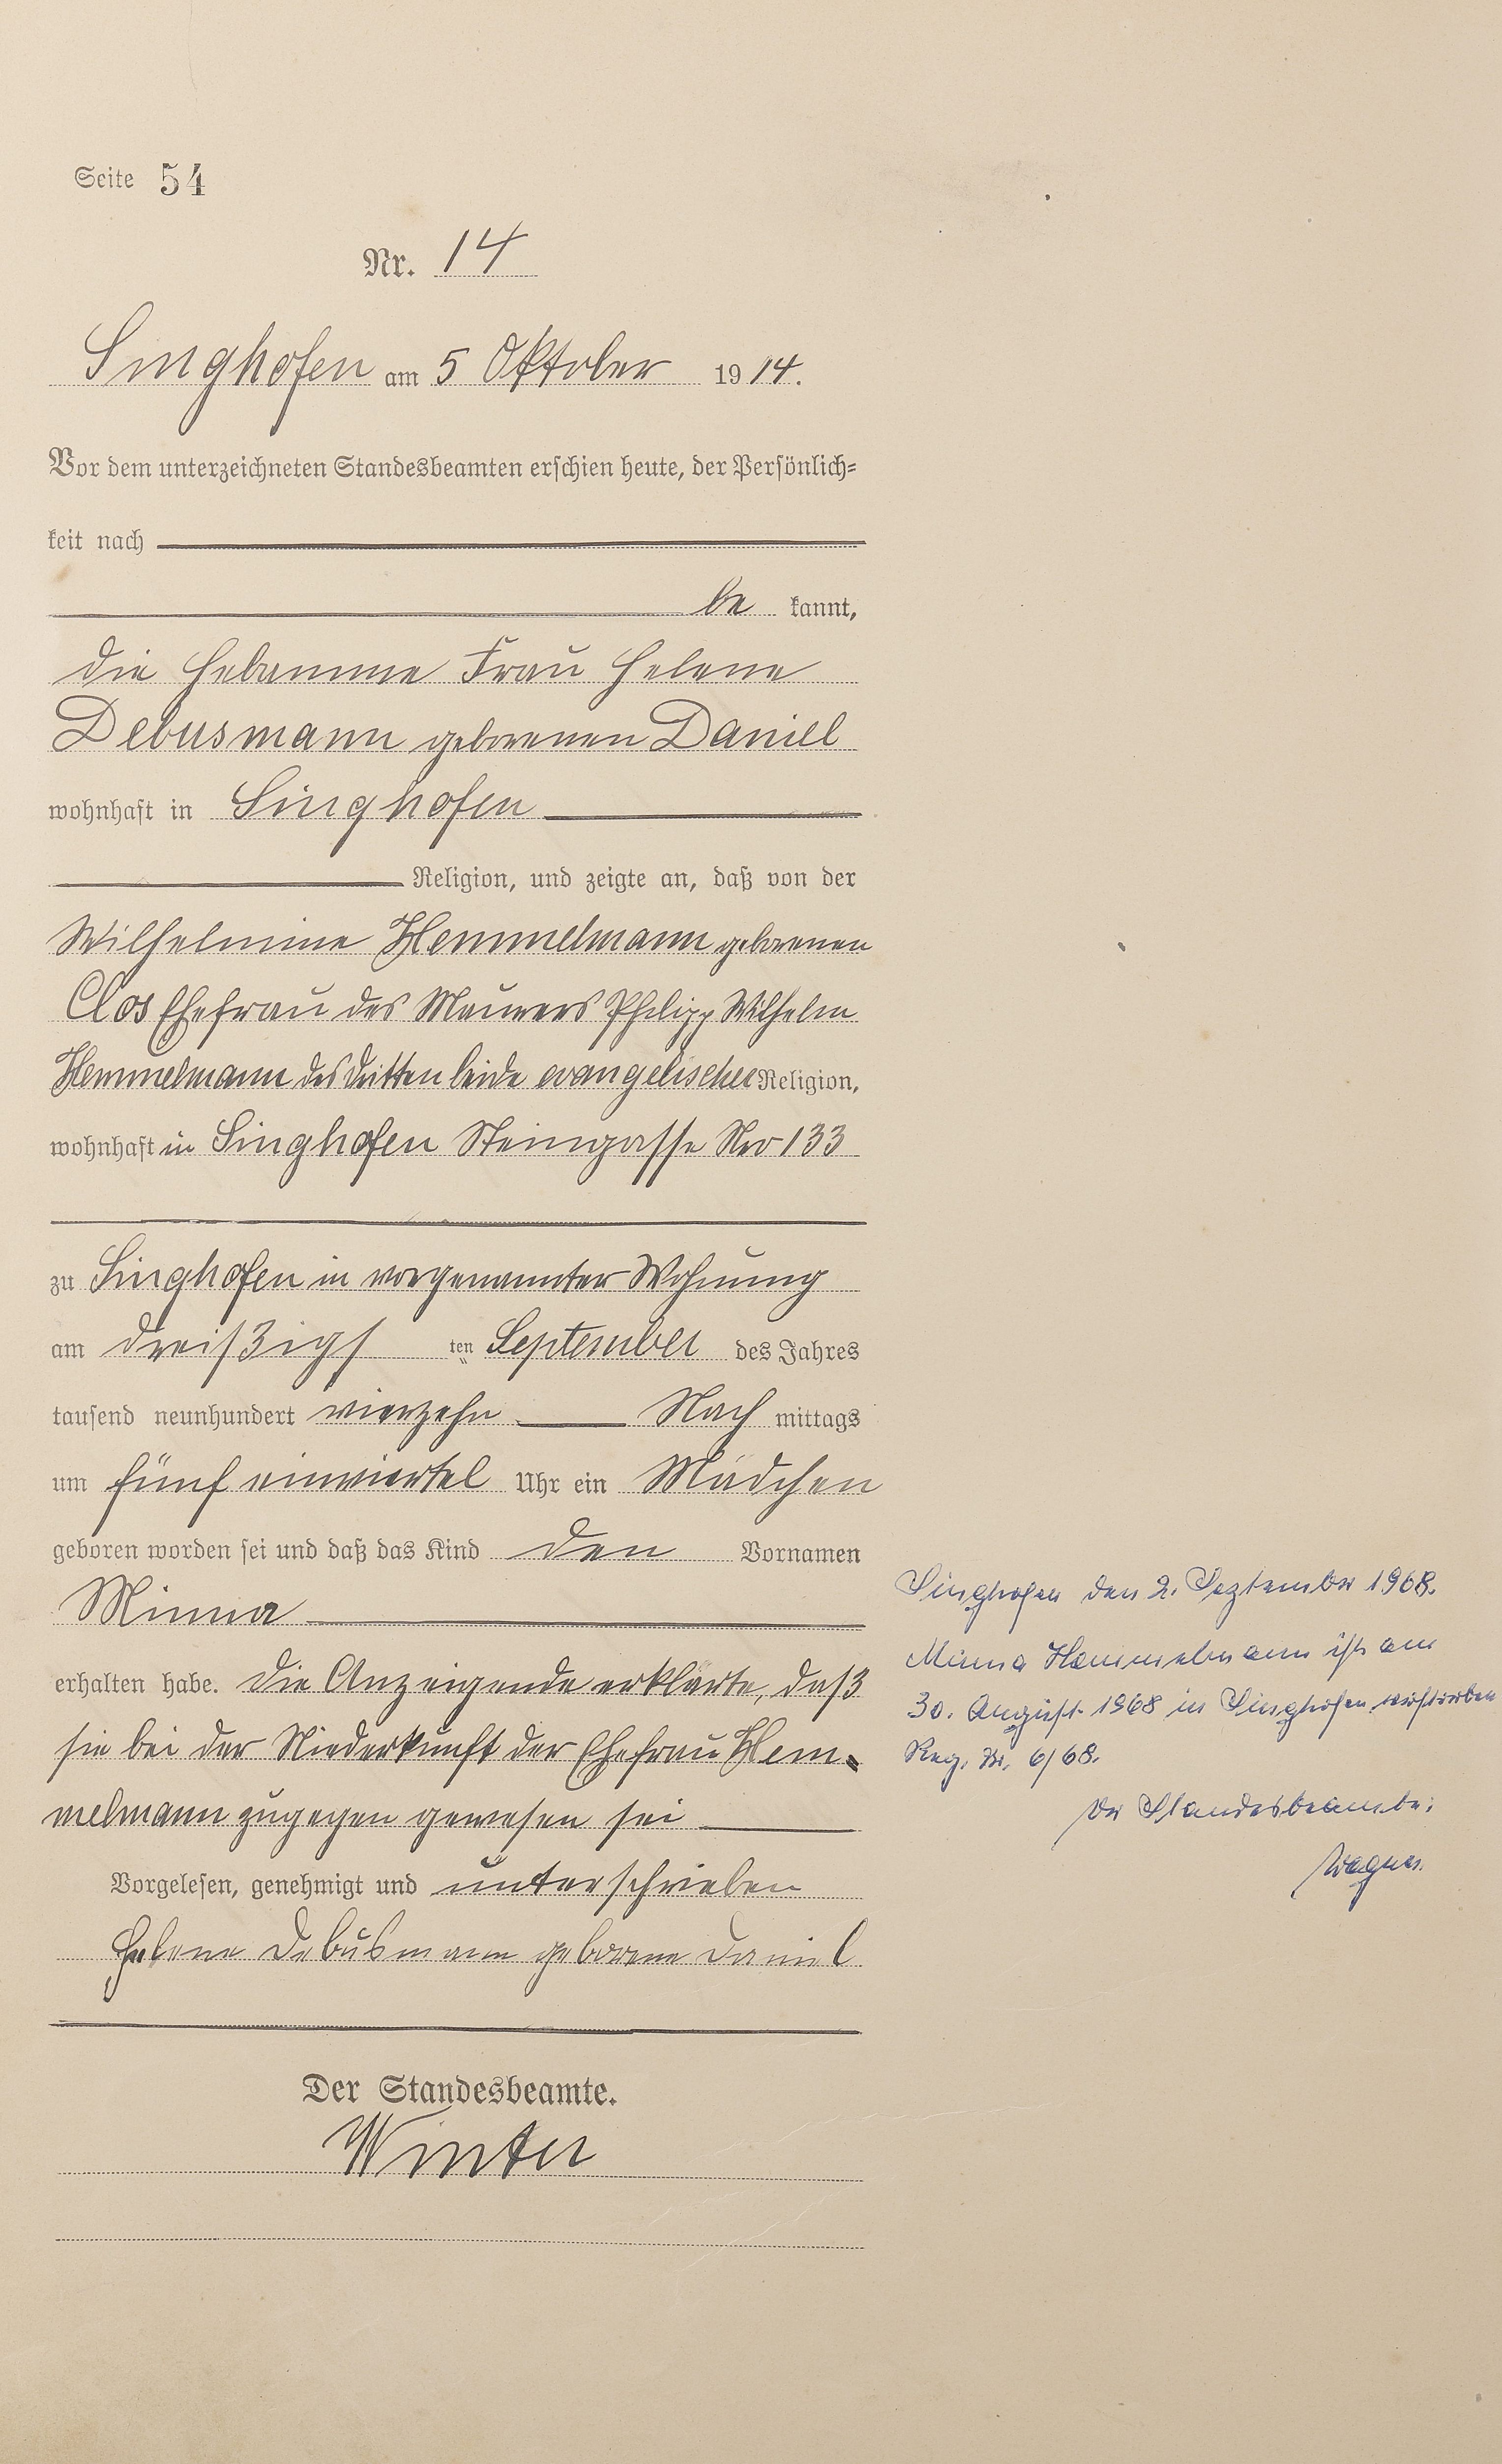 Seite 54
Nr. 14
Singhofen am 5 Oktober 1914.
Vor dem unterzeichneten Standesbeamten erschien heute, der Persönlich-
keit nach
be kannt,
die Hebamme Frau Helene
Debusmann geborenen Daniel
wohnhaft in Singhofen
Religion, und zeigte an, daß von der
Wilhelmine Hemmelmann geborenen
Clos Ehefrau des Maurers Philipp Wilhelm
Hemmelmann des dritten beide evangelischer Religion,
wohnhaft in Singhofen Steingasse Nro 133
zu Singhofen in vorgenannter Wohnung
am dreißigs ten September des Jahres
tausend neunhundert vierzehn Nach mittags
um fünf einviertel Uhr ein Mädchen
geboren worden sei und daß das Kind den Vornamen
Minna
erhalten habe. Die Anzeigende erklärte, daß
sie bei der Niederkunft der Ehefrau Hem-
melmann zugegen gewesen sei
Vorgelesen, genehmigt und unterschrieben
Helene Debusmann geborene Daniel
Der Standesbeamte.
Winter
Singhofen den 2. September 1968.
Minna Hemmelmann ist am
30. August 1968 in Singhofen verstorben
Reg. Nr. 6/68.
Der Standesbeamte:
Wagner